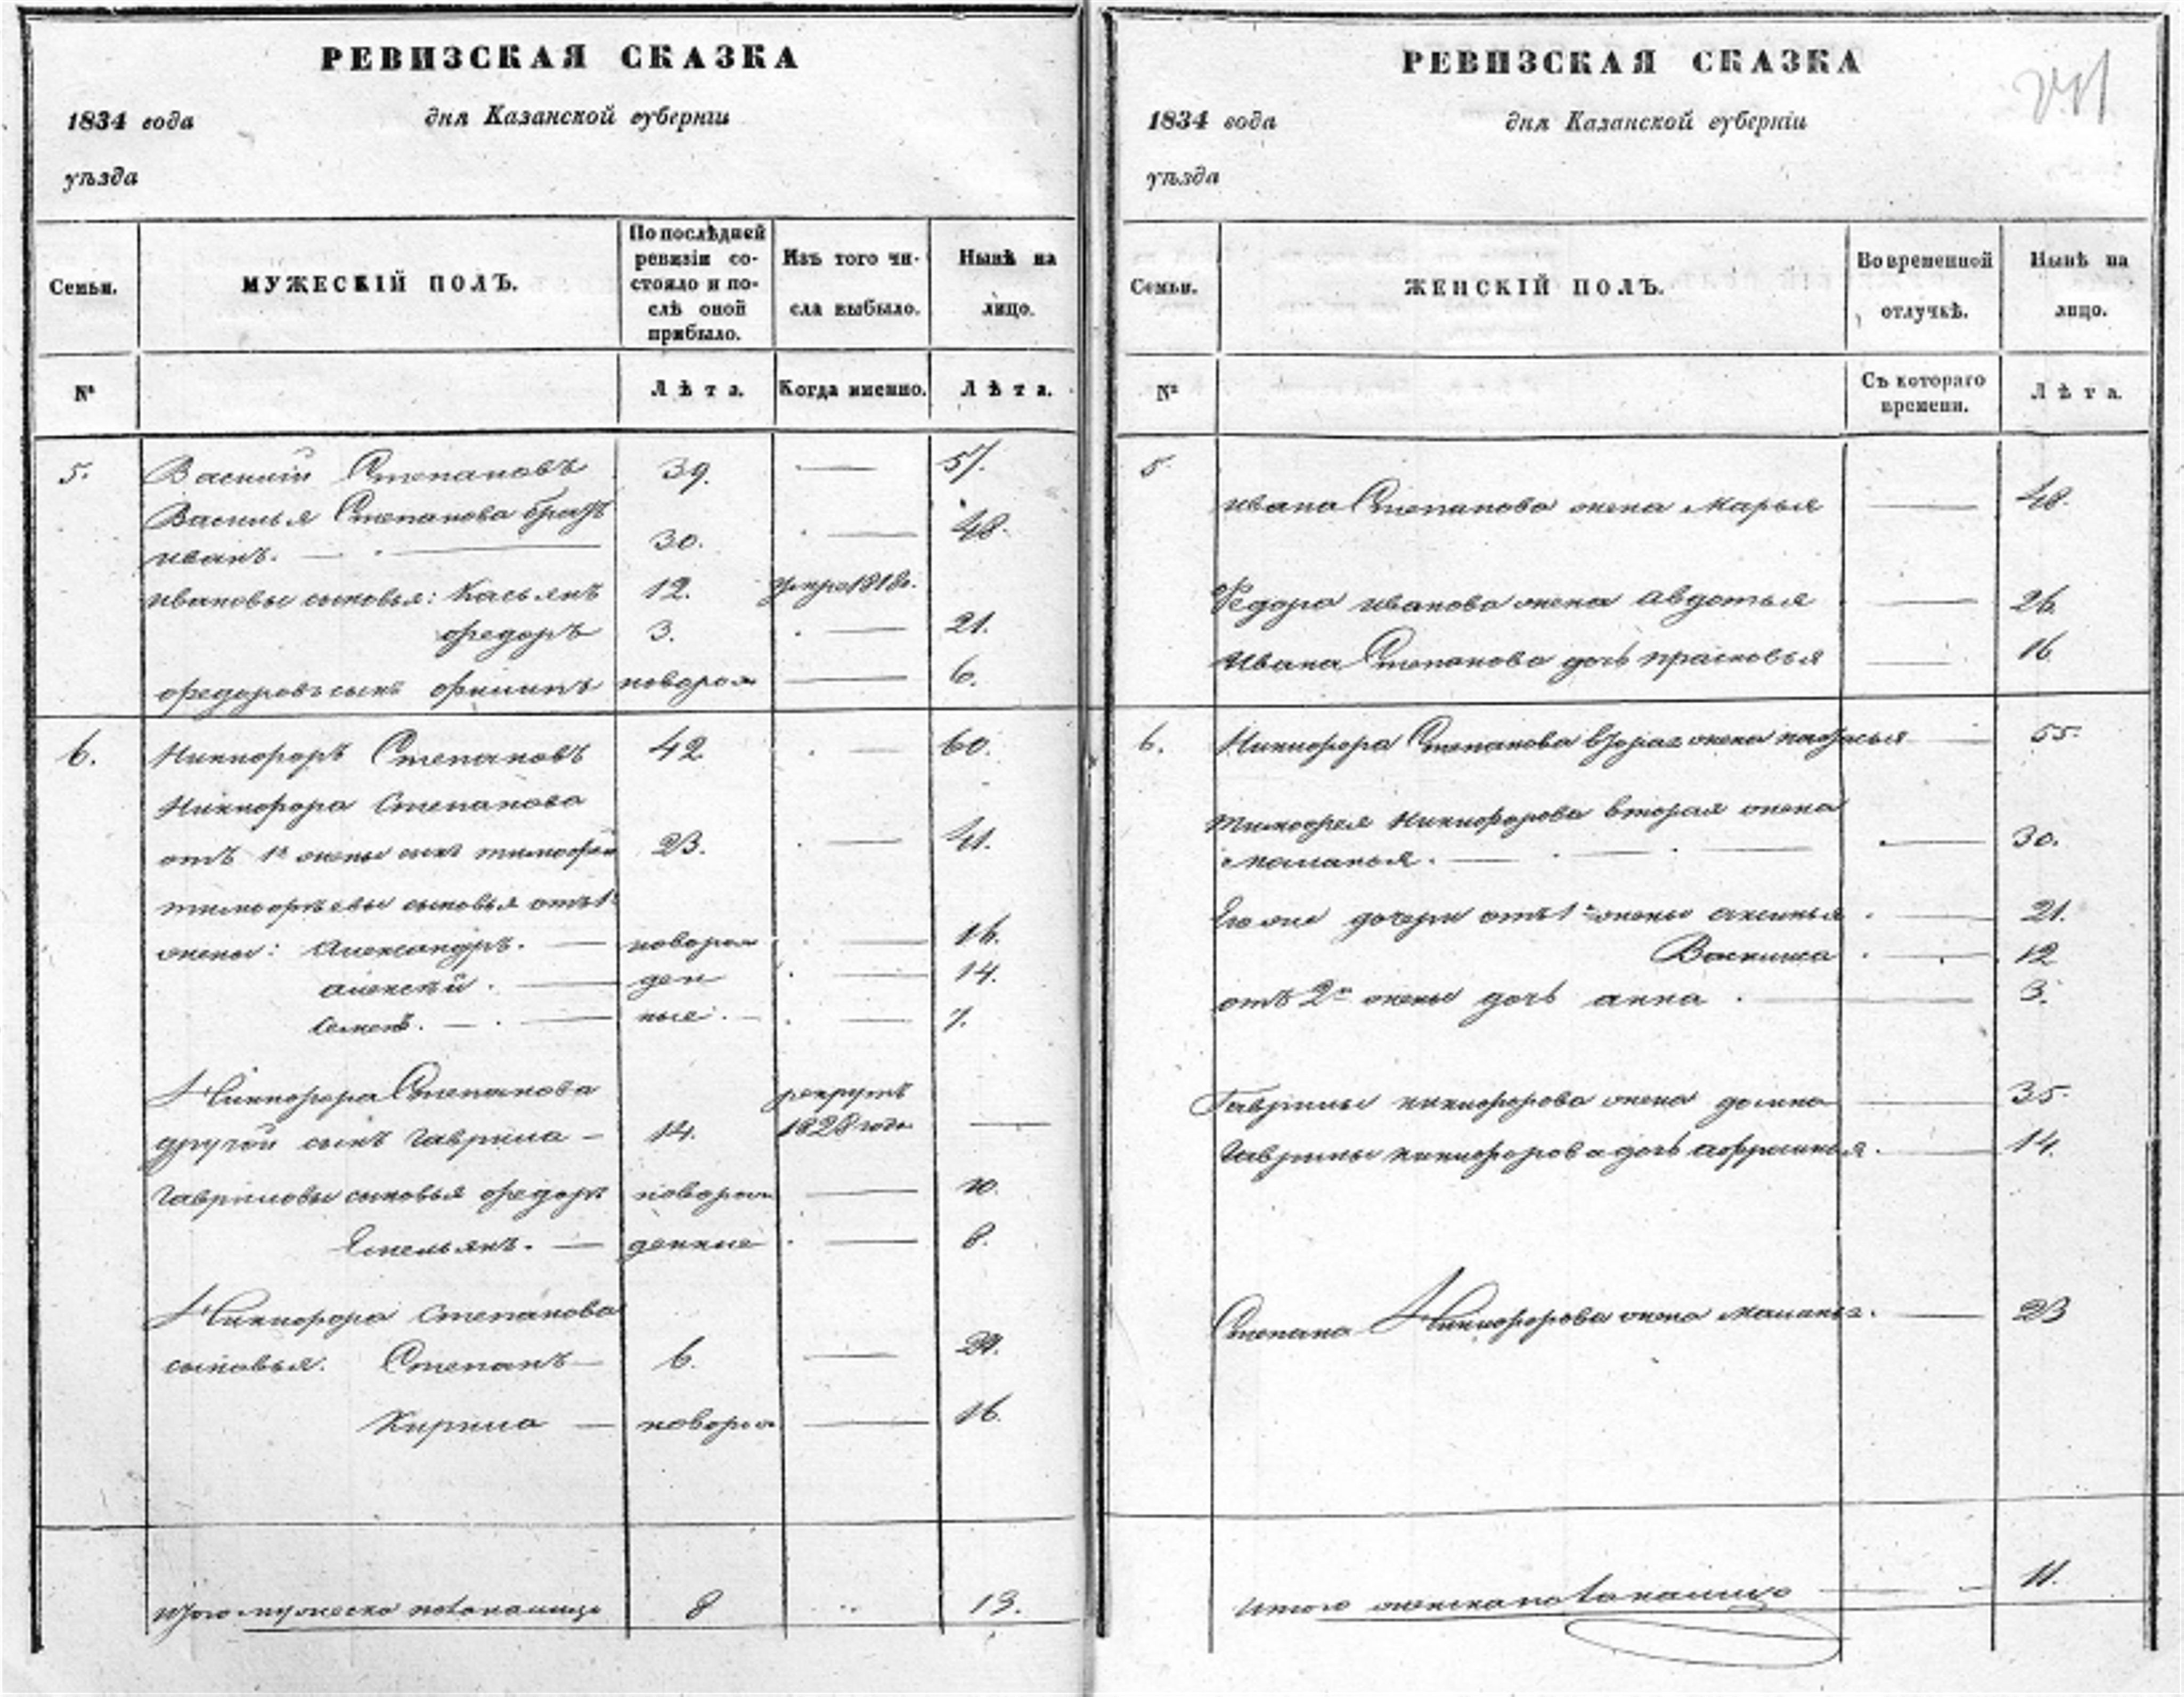 РЕВИЗСКАЯ СКАЗКА
1834 года
дня Казанской губерніи
уѣзда
Семьи.
МУЖЕСКІЙ ПОЛЪ.
По послѣдней
ревизіи со-
стояло и по-
слѣ оной
прибыло.
Изъ того чи-
сла выбыло.
Нынѣ на
лицо.
№
Лѣта.
Когда именно.
Лѣта.
5. Василій Степановъ 39. — 57.
Василья Степанова братъ
иванъ. — 30. — 48.
ивановы сыновья: Касьянъ 12. умре 1818г.
федоръ 3. — 21.
федоровъ сынъ филипъ новорож — 6.
6. Никифоръ Степановъ 42. — 60.
Никифора Степанова
отъ 1й жены сынъ тимофей 23. — 41.
тимофѣевы сыновья отъ 1й
жены: Александръ. — новорож — 16.
алексѣй. — ден — 14.
семенъ. — ные. — 7.
Никифора Степанова рекрутъ
другой сынъ Гаврила — 14. 1828 года —
Гавриловы сыновья федоръ новорож — 10.
Емельянъ. — денные — 8.
Никифора степанова
сыновья. Степанъ — 6. — 24.
Кирила — новорож — 16.
Итого мужеска пола налицо 8 13.
РЕВИЗСКАЯ СКАЗКА
1834 года
дня Казанской губерніи
уѣзда
Семьи.
ЖЕНСКІЙ ПОЛЪ.
Во временной
отлучкѣ.
Нынѣ на
лицо.
№
Съ котораго
времени.
Лѣта.
5
ивана Степанова жена марья — 48.
Федора иванова жена авдотья — 26.
Ивана Степанова дочь прасковья — 16
6. Никифора Степанова вторая жена настасья — 55.
Тимофея Никифорова вторая жена
маланья. — 30.
Его же дочери отъ 1й жены аксинья — 21.
Василиса — 12
отъ 2й жены дочь анна. — 3.
Гаврилы никифорова жена домна — 35.
Гаврилы никифорова дочь афросинья. — 14.
Степана Никифорова жена маланья. — 23
Итого женска пола налицо — 11.